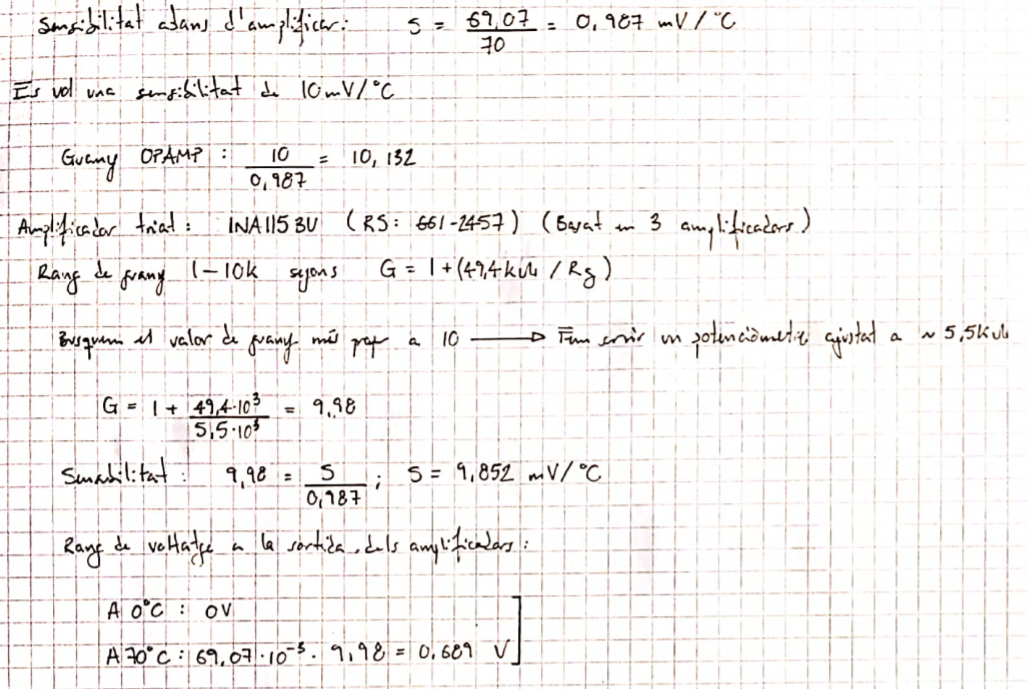 Sensibilitat abans d'amplificar: S = 69,07 / 70 = 0,987 mV/°C
Es vol una sensibilitat de 10mV/°C
Guany OPAMP : 10 / 0,987 = 10,132
Amplificador triat : INA115BU (RS: 661-2457) (Basat en 3 amplificadors)
Rang de guany 1-10k segons G = 1+(49,4kΩ / Rg)
Busquem el valor de guany més prop a 10 → Fem servir un potenciòmetre ajustat a ~ 5,5kΩ
G = 1 + 49,4·10³ / 5,5·10³ = 9,98
Sensibilitat : 9,98 = S / 0,987 ; S = 9,852 mV/°C
Rang de voltatge a la sortida dels amplificadors :
A 0°C : 0V
A 70°C : 69,07·10⁻³ · 9,98 = 0,689 V